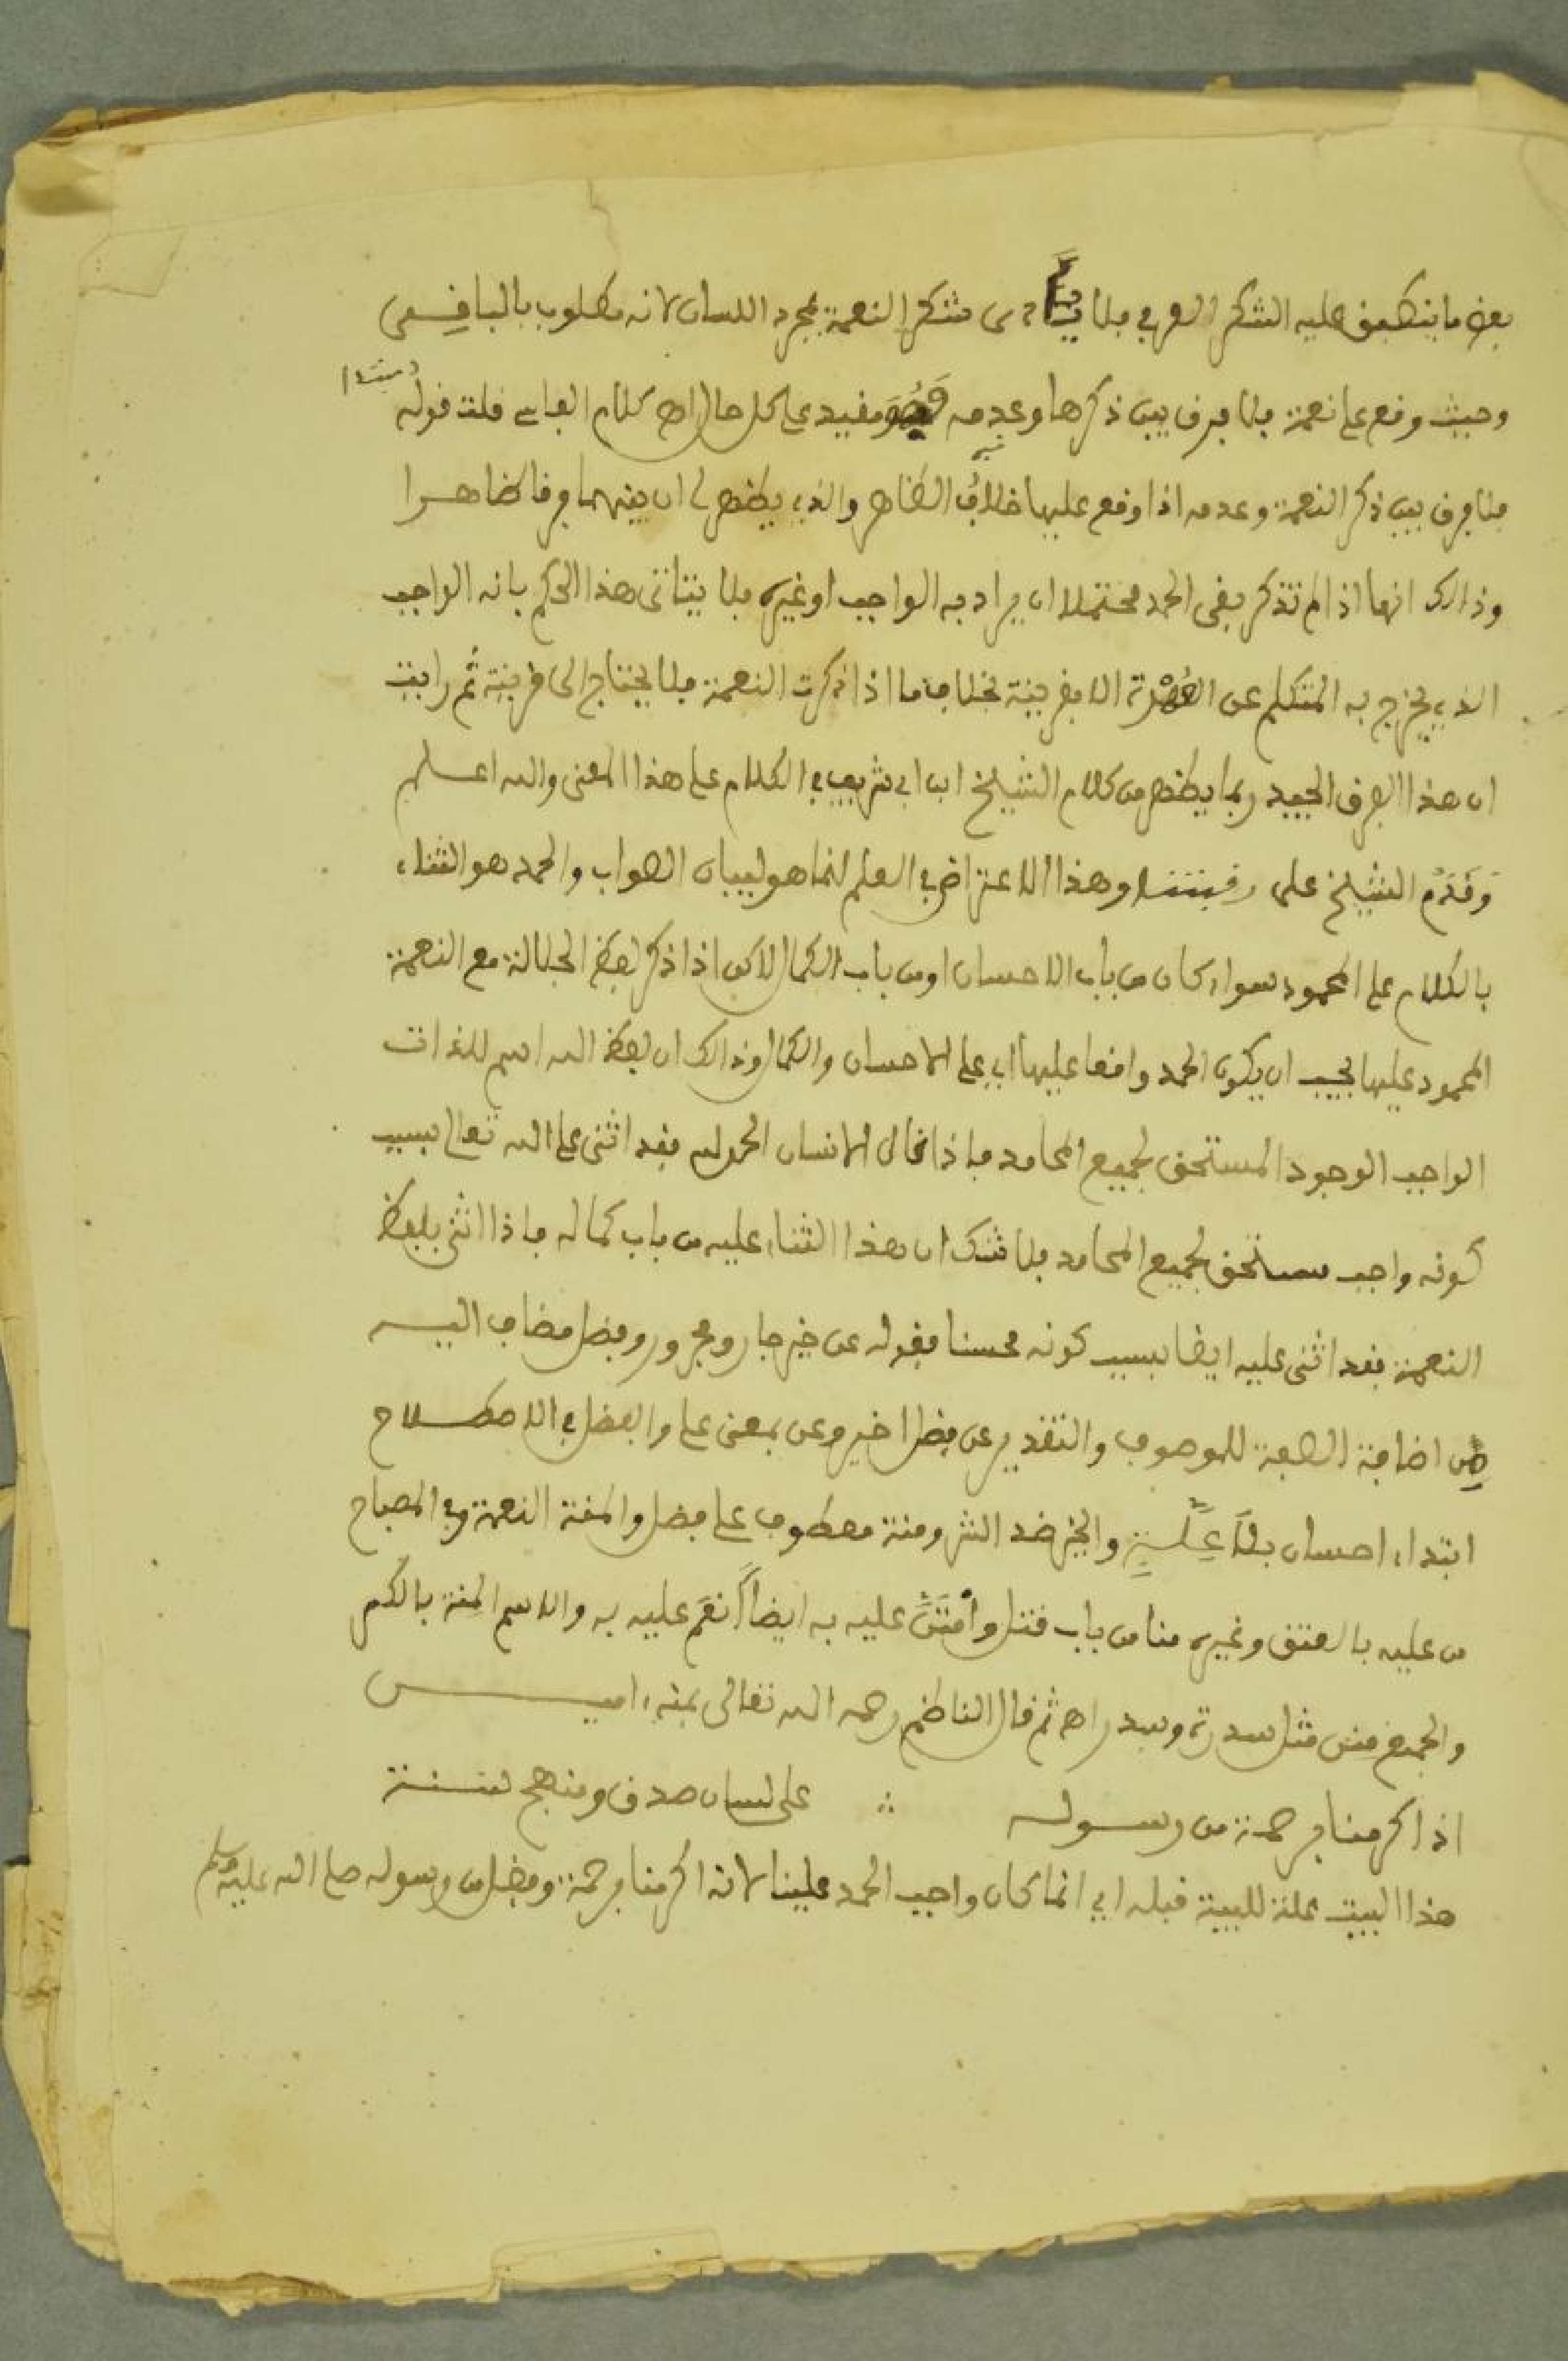 بعض ما ينطبق عليه الشكر العرفي فلا يتأدى شكر النعمة بمجرد اللسان لانه مطلوب بالباقي
وحيث وقع على نعمة فلا فرق بين ذكرها وعدمه فهو مقيد على كل حال اه كلام الفاسي قلت قوله
فلا فرق بين ذكر النعمة وعدمه اذا وقع عليها خلاف الظاهر والذي يظهر لي ان بينهما فرقا ظاهرا
وذالك انها اذا لم تذكر بقي الحمد محتملا ان يراد به الواجب او غيره فلا يتاتى هذا الحكم بانه الواجب
الذي يخرج به المتكلم عن العهدة الا بقرينة بخلاف ما اذا ذكرت النعمة فلا يحتاج الى قرينة ثم رايت
ان هذا الفرق الجيد ربما يظهر من كلام الشيخ ابن ابي شريف في الكلام على هذا المعنى والله اعلم
وقدم الشيخ على وهذا الاعتراض في العلم انما هو لبيان الصواب والحمد هو الثناء
بالكلام على المحمود سواء كان من باب الاحسان او من باب الكمال لاكن اذا ذكر لفظ الجلالة مع النعمة
المحمود عليها يجب ان يكون الحمد واقعا عليها اي على الاحسان والكمال وذالك ان لفظ الله اسم للذات
الواجب الوجود المستحق لجميع المحامد فاذا قال الانسان الحمد لله فقد اثنى على الله تعالى بسبب
كونه واجب مستحق لجميع المحامد فلا شك ان هذا الثناء عليه من باب كماله فاذا اثنى بلفظ
النعمة فقد اثنى عليه ايضا بسبب كونه محسنا فقوله عن خير جار ومجرور وفضل مضاف اليه
من اضافة الصفة للموصوف والتقدير عن فضل اخير وعن بمعنى على والفضل في الاصطلاح
ابتداء احسان بلا علة والخير ضد الشر ومنة معطوف على فضل والمنة النعمة وفي المصباح
من عليه بالعتق وغيره منا من باب قتل وامتن عليه به ايضا انعم عليه به والاسم المنة بالكسر
والجمع منن مثل سدرة وسدر اه ثم قال الناظم رحمه الله تعالى بمنه ءامين
اذ اكرمنا برحمة من رسوله ∴ على لسان صدق ومنهج سنة
هذا البيت علة للبيت قبله اي انما كان واجب الحمد علينا لانه اكرمنا برحمة وفضل من رسوله صلى الله عليه وسلم